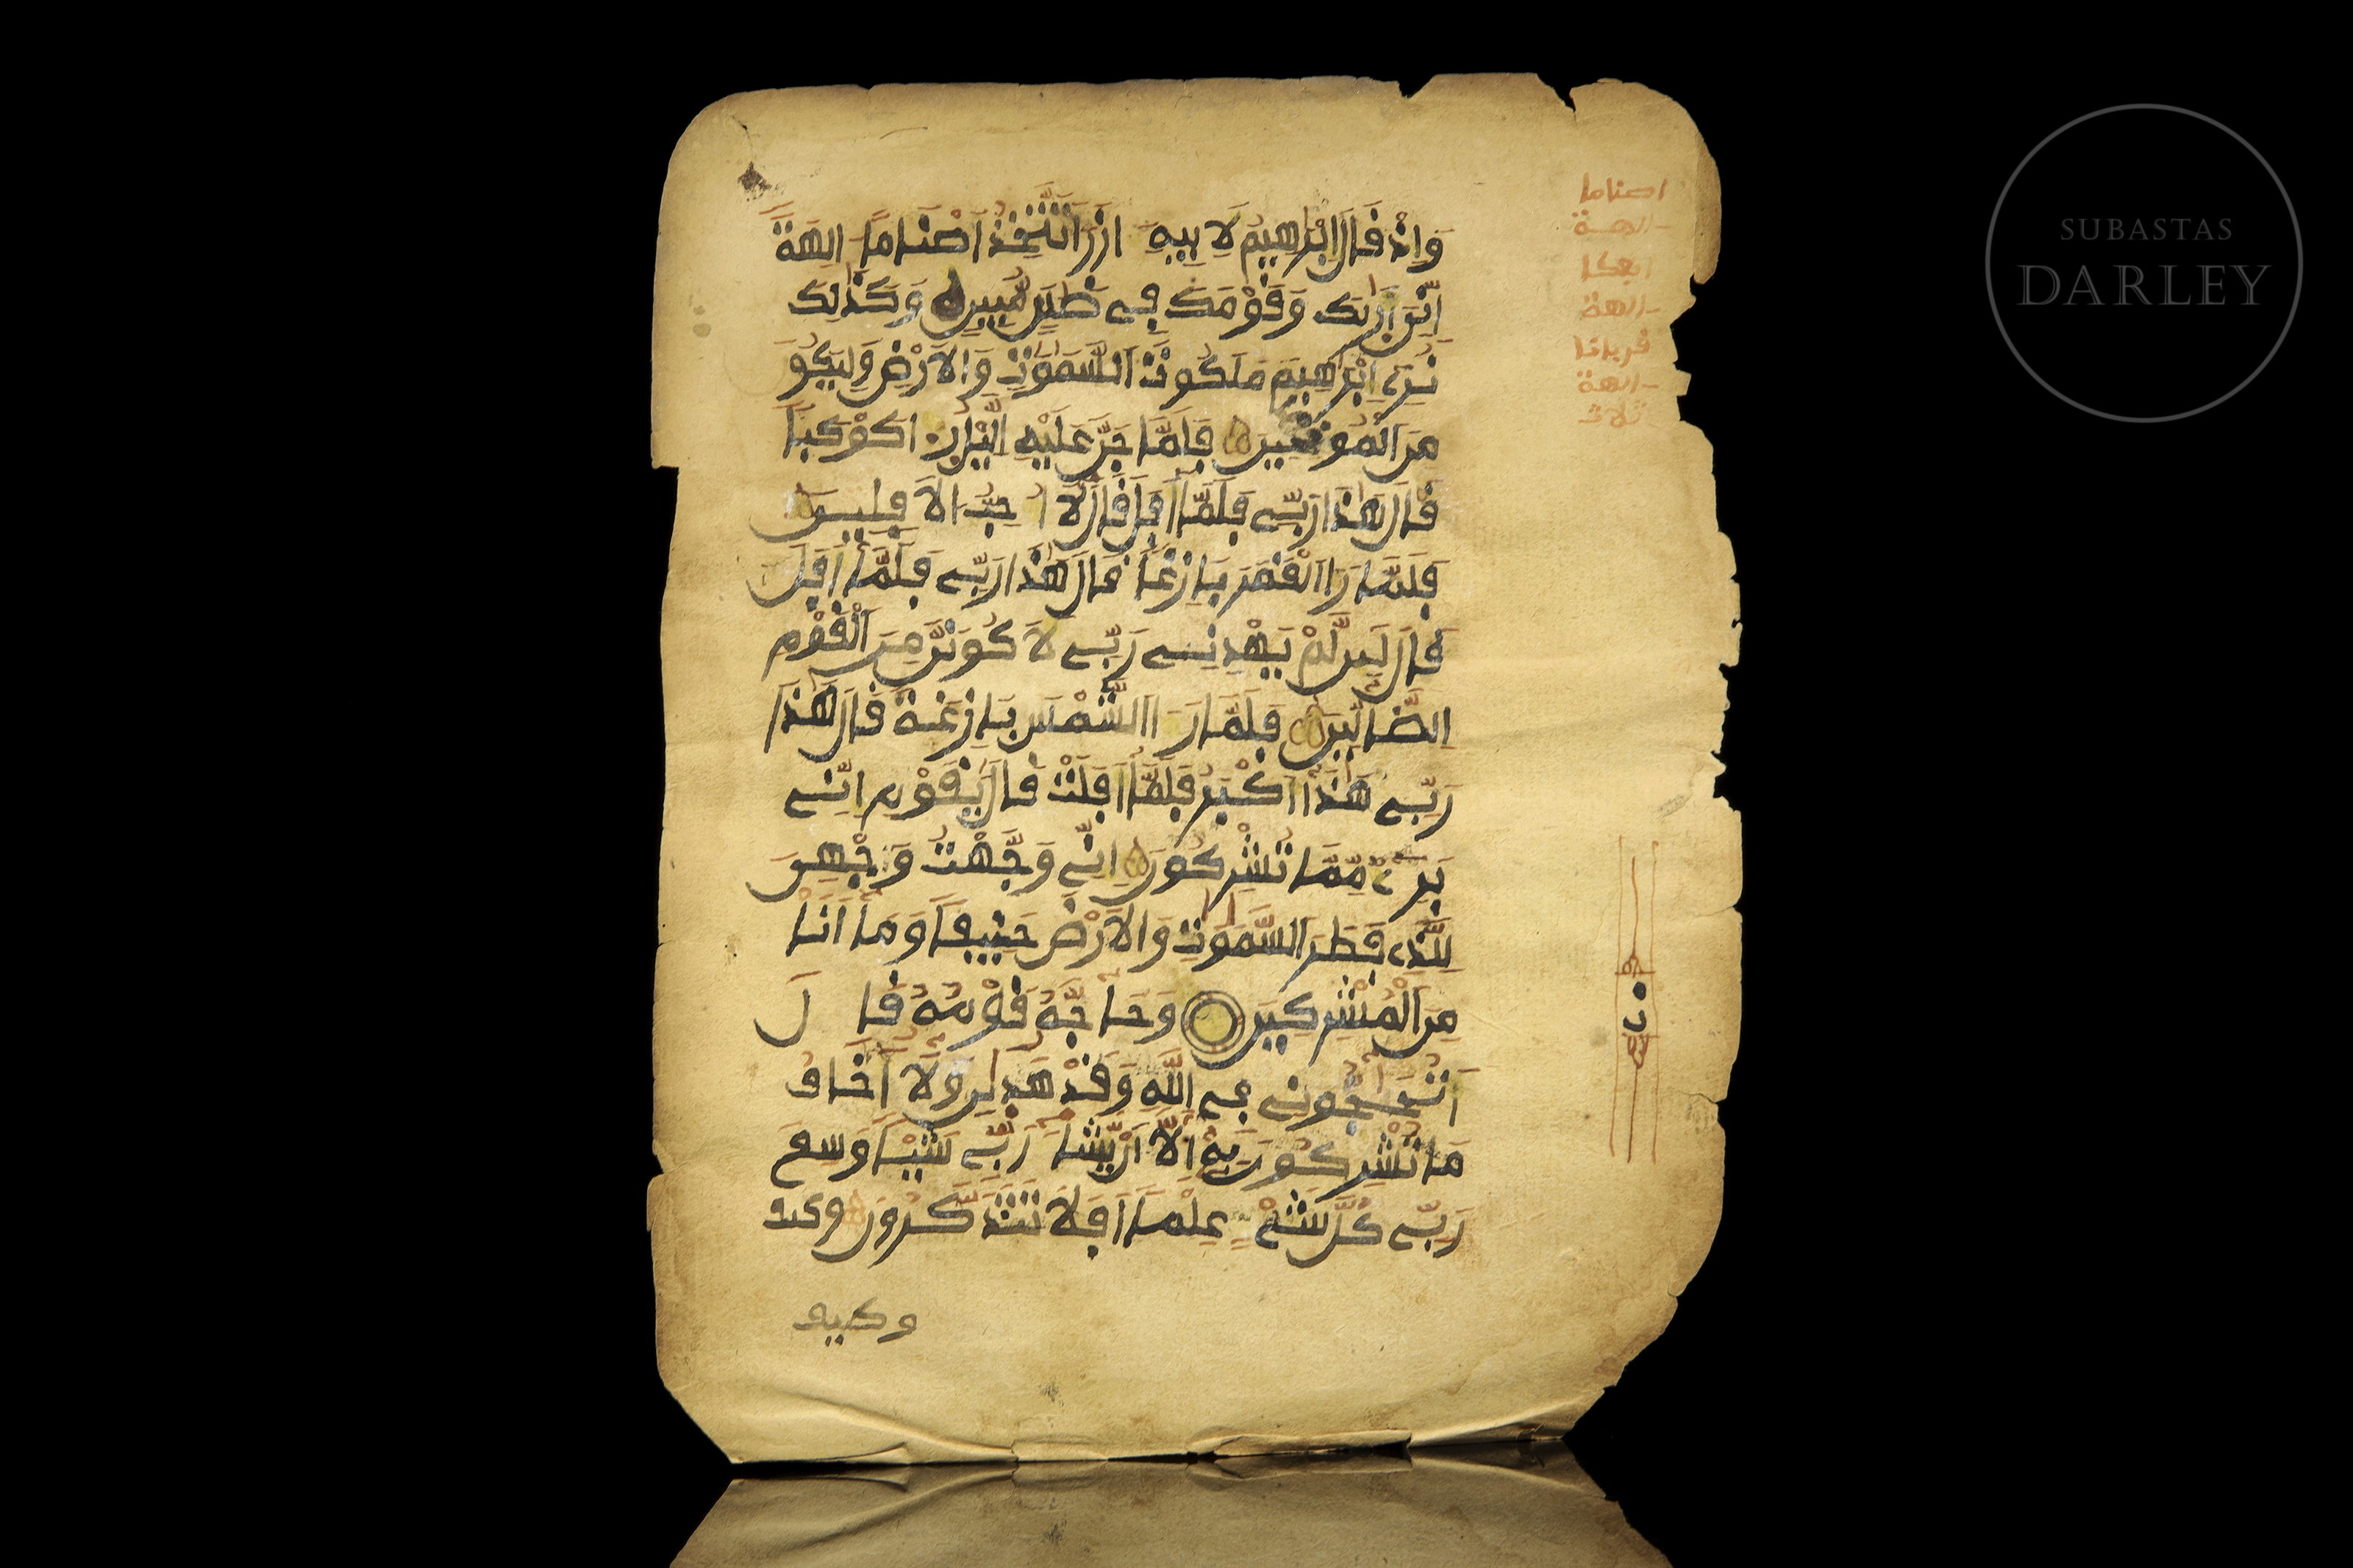 وَإِذْ قَالَ إِبْرَٰهِيمُ لِأَبِيهِ ازَرَ أَتَتَّخِذُ أَصْنَامًا الِهَةً
إِنِّيَ أَرَىٰكَ وَقَوْمَكَ فِي ضَلَٰلٍ مُّبِينٍ وَكَذَٰلِكَ
نُرِي إِبْرَٰهِيمَ مَلَكُوتَ السَّمَٰوَٰتِ وَالْأَرْضِ وَلِيَكُو
مِنَ الْمُوقِنِينَ فَلَمَّا جَنَّ عَلَيْهِ الَّيْلُ رَءَا كَوْكَبًا
قَالَ هَٰذَا رَبِّي فَلَمَّا أَفَلَ قَالَ لَا أُحِبُّ الْأَفِلِينَ
فَلَمَّا رَءَا الْقَمَرَ بَازِغًا قَالَ هَٰذَا رَبِّي فَلَمَّا أَفَلَ
قَالَ لَئِن لَّمْ يَهْدِنِي رَبِّي لَأَكُونَنَّ مِنَ الْقَوْمِ
الضَّالِّينَ فَلَمَّا رَءَا الشَّمْسَ بَازِغَةً قَالَ هَٰذَا
رَبِّي هَٰذَا أَكْبَرُ فَلَمَّا أَفَلَتْ قَالَ يَٰقَوْمِ إِنِّي
بَرِيءٌ مِّمَّا تُشْرِكُونَ إِنِّي وَجَّهْتُ وَجْهِيَ
لِلَّذِي فَطَرَ السَّمَٰوَٰتِ وَالْأَرْضَ حَنِيفًا وَمَا أَنَا
مِنَ الْمُشْرِكِينَ وَحَاجَّهُ قَوْمُهُ قَالَ
أَتُحَٰجُّونِي فِي اللَّهِ وَقَدْ هَدَىٰنِ وَلَا أَخَافُ
مَا تُشْرِكُونَ بِهِ إِلَّا أَن يَّشَاءَ رَبِّي شَيْـًٔا وَسِعَ
رَبِّي كُلَّ شَيْءٍ عِلْمًا أَفَلَا تَتَذَكَّرُونَ وكيف
وكيف
اصناما
الهة
ايفكا
الهة
قربانا
الهة
ثلاث
SUBASTAS
DARLEY